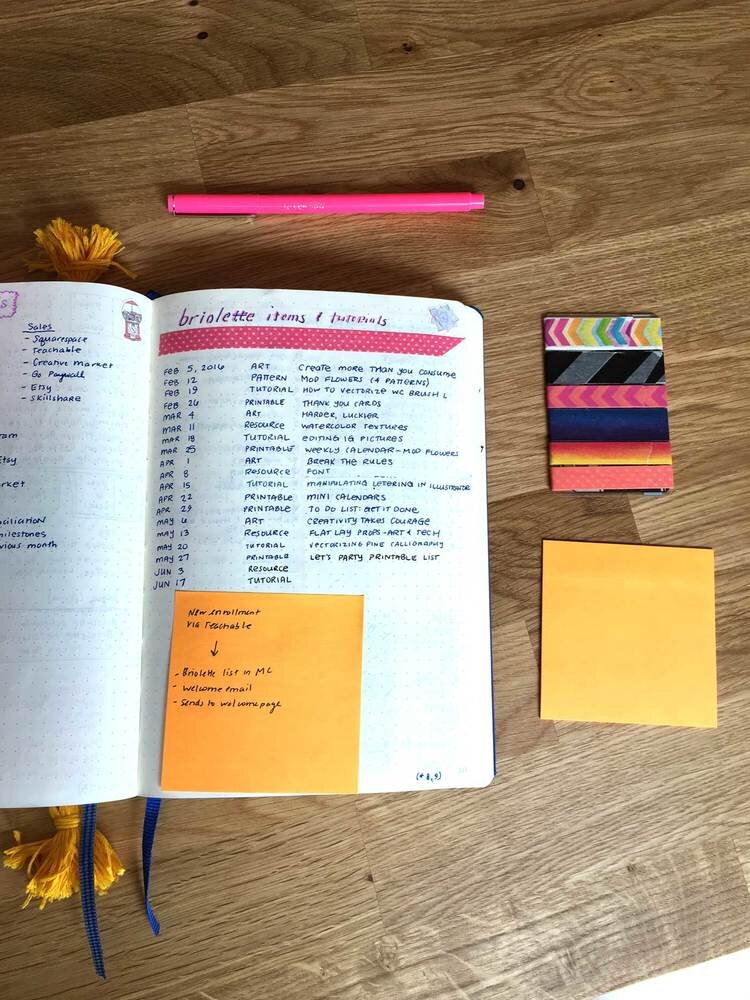 s
Sales
- Squarespace
- Teachable
- Creative market
- Go Paywall
- Etsy
- Skillshare
ram
Etsy
rket
ciliation
milestones
vious month
briolette items & tutorials
FEB 5, 2016 ART CREATE MORE THAN YOU CONSUME
FEB 12 PATTERN MOD FLOWERS (4 PATTERNS)
FEB 19 TUTORIAL HOW TO VECTORIZE WC BRUSH L
FEB 26 PRINTABLE THANK YOU CARDS
MAR 4 ART HARDER, LUCKIER
MAR 11 RESOURCE WATERCOLOR TEXTURES
MAR 18 TUTORIAL EDITING IG PICTURES
MAR 25 PRINTABLE WEEKLY CALENDAR-MOD FLOWERS
APR 1 ART BREAK THE RULES
APR 8 RESOURCE FONT
APR 15 TUTORIAL MANIPULATING LETERING IN ILLUSTRATOR
APR 22 PRINTABLE MINI CALENDARS
APR 29 PRINTABLE TO DO LIST: GET IT DONE
MAY 6 ART CREATIVITY TAKES COURAGE
MAY 13 RESOURCE FLAT LAY PROPS-ART & TECH
MAY 20 TUTORIAL VECTORIZING FINE CALLIGRAPHY
MAY 27 PRINTABLE LET'S PARTY PRINTABLE LIST
JUN 3 RESOURCE
JUN 17 TUTORIAL
New enrollment
via Teachable
↓
- Briolette list in MC
- Welcome email
- Sends to welcome page